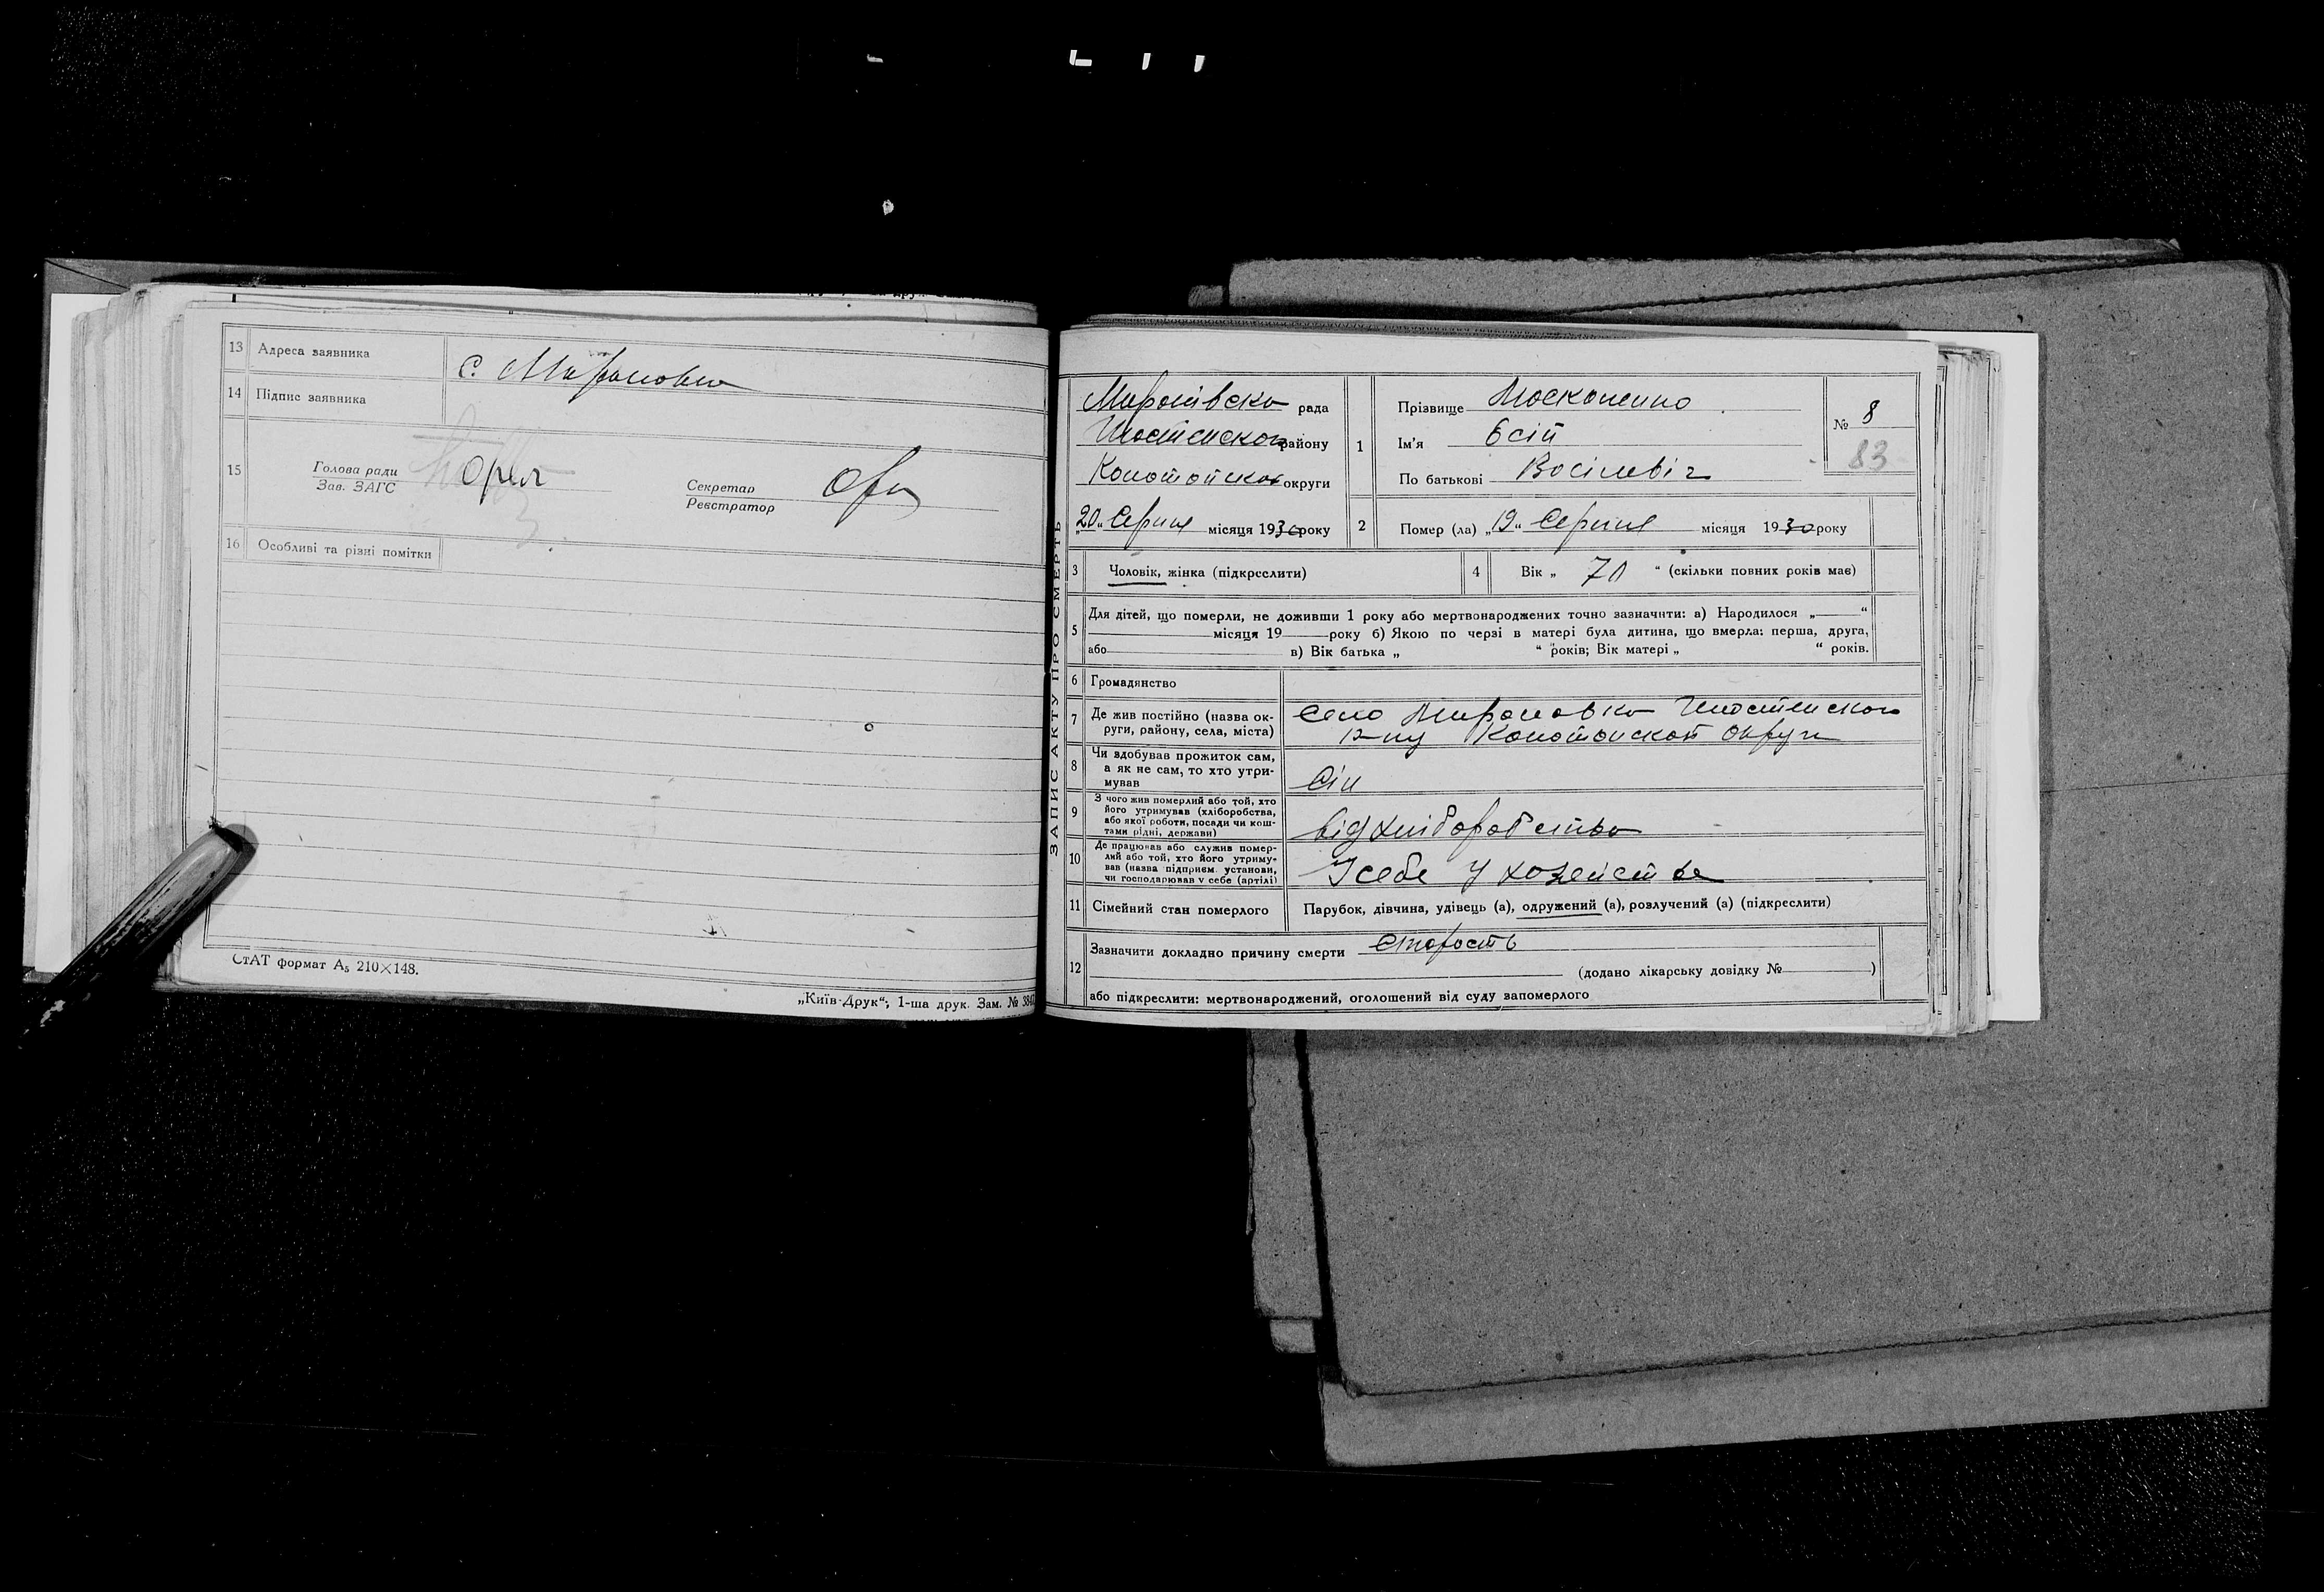 13 Адреса заявника с. Мироновка
14 Підпис заявника
15 Голова ради Зав. ЗАГС Орел Секретар Реєстратор
16 Особливі та різні помітки
СтАТ формат А5 210×148.
„Київ-Друк“; 1-ша друк. Зам. №
ЗАПИС АКТУ ПРО СМЕРТЬ
Миронівска рада
Шостенского району
Конотопскої округи
„20„ Серпня місяця 1930 року
1 Прізвище Москаленко
Ім'я Єсій
По батькові Васілевіч
№ 8
83
2 Помер (ла) „19“ Серпня місяця 1930 року
3 Чоловік, жінка (підкреслити)
4 Вік „ 70 “ (скільки повних років має)
5 Для дітей, що померли, не доживши 1 року або мертвонароджених точно зазначити: а) Народилося „ “
місяця 19 року б) Якою по черзі в матері була дитина, що вмерла: перша, друга,
або в) Вік батька „ “ років; Вік матері „ “ років.
6 Громадянство
7 Де жив постійно (назва ок-
руги, району, села, міста)
Село Мироновка Шостенского
р-ну Конотопской округи
8 Чи здобував прожиток сам,
а як не сам, то хто утри-
мував
Сін
9 З чого жив померлий або той, хто
його утримував (хліборобства,
або якої роботи, посади чи кош-
тами рідні, держави)
від хліборобства
10 Де працював або служив помер-
лий або той, хто його утриму-
вав (назва підприєм. установи,
чи господарював у себе (артілі)
У себе у хозействе
11 Сімейний стан померлого Парубок, дівчина, удівець (а), одружений (а), розлучений (а) (підкреслити)
12 Зазначити докладно причину смерти старость
(додано лікарську довідку № )
або підкреслити: мертвонароджений, оголошений від суду запомерлого